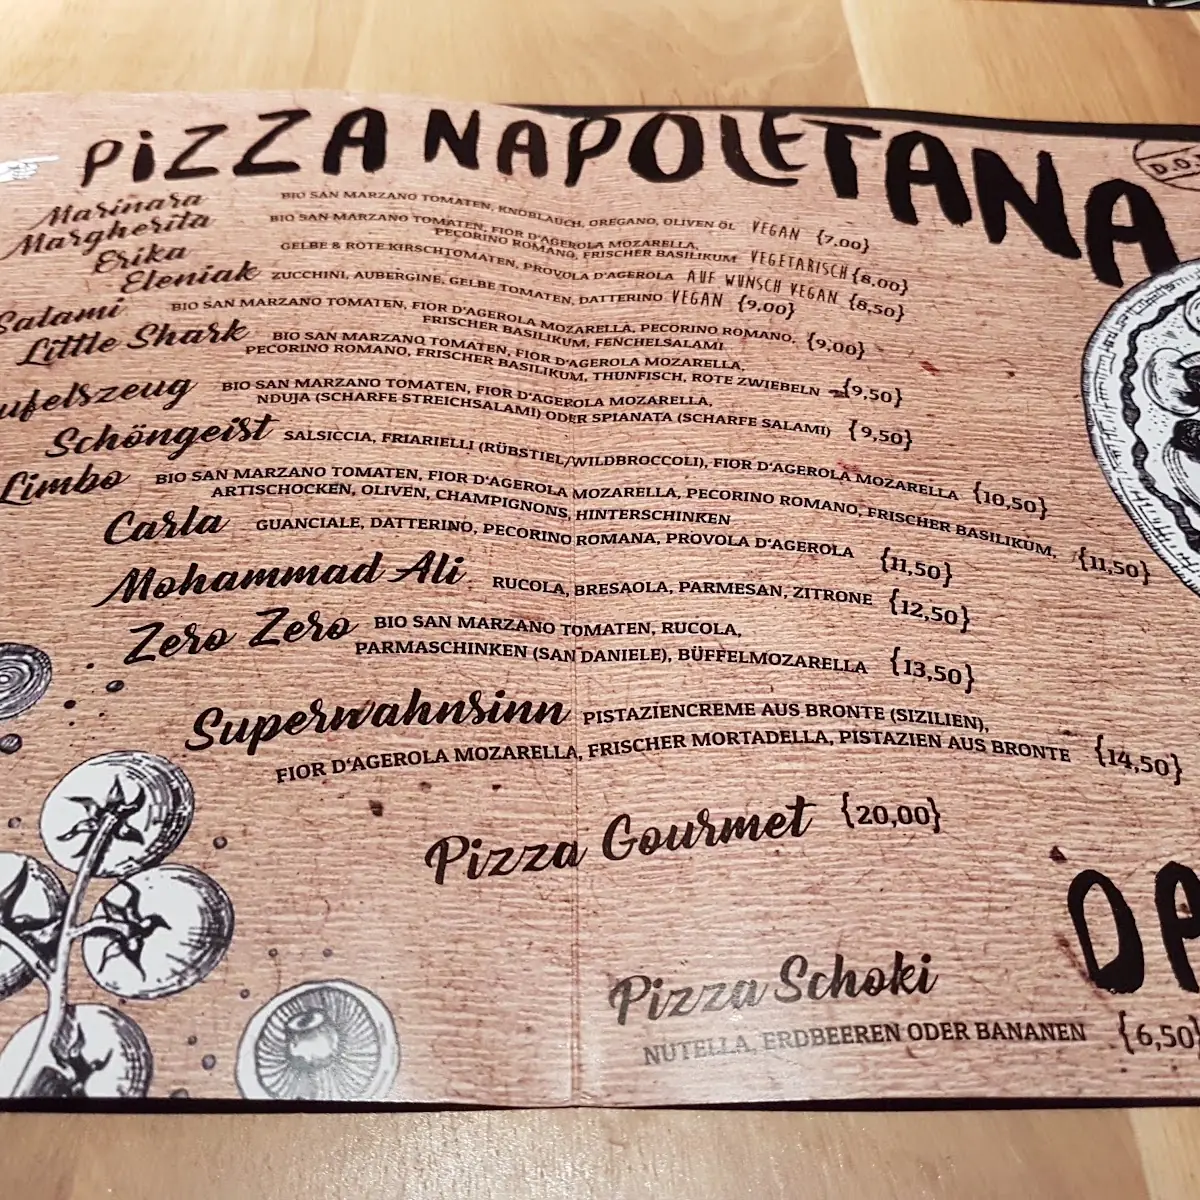 PiZZA NAPOLETANA
D.O.
Marinara BIO SAN MARZANO TOMATEN, KNOBLAUCH, OREGANO, OLIVEN ÖL VEGAN {7,00}
Margherita BIO SAN MARZANO TOMATEN, FIOR D'AGEROLA MOZARELLA,
PECORINO ROMANO, FRISCHER BASILIKUM VEGETARISCH {8,00}
Erika GELBE & ROTE KIRSCHTOMATEN, PROVOLA D'AGEROLA AUF WUNSCH VEGAN {8,50}
Eleniak ZUCCHINI, AUBERGINE, GELBE TOMATEN, DATTERINO VEGAN {9,00}
Salami BIO SAN MARZANO TOMATEN, FIOR D'AGEROLA MOZARELLA, PECORINO ROMANO,
FRISCHER BASILIKUM, FENCHELSALAMI {9,00}
Little Shark BIO SAN MARZANO TOMATEN, FIOR D'AGEROLA MOZARELLA,
PECORINO ROMANO, FRISCHER BASILIKUM, THUNFISCH, ROTE ZWIEBELN {9,50}
ufelszeug BIO SAN MARZANO TOMATEN, FIOR D'AGEROLA MOZARELLA,
NDUJA (SCHARFE STREICHSALAMI) ODER SPIANATA (SCHARFE SALAMI) {9,50}
Schöngeist SALSICCIA, FRIARIELLI (RÜBSTIEL/WILDBROCCOLI), FIOR D'AGEROLA MOZARELLA {10,50}
Limbo BIO SAN MARZANO TOMATEN, FIOR D'AGEROLA MOZARELLA, PECORINO ROMANO, FRISCHER BASILIKUM,
ARTISCHOCKEN, OLIVEN, CHAMPIGNONS, HINTERSCHINKEN {11,50}
Carla GUANCIALE, DATTERINO, PECORINO ROMANA, PROVOLA D'AGEROLA {11,50}
Mohammad Ali RUCOLA, BRESAOLA, PARMESAN, ZITRONE {12,50}
Zero Zero BIO SAN MARZANO TOMATEN, RUCOLA,
PARMASCHINKEN (SAN DANIELE), BÜFFELMOZARELLA {13,50}
Superwahnsinn PISTAZIENCREME AUS BRONTE (SIZILIEN),
FIOR D'AGEROLA MOZARELLA, FRISCHER MORTADELLA, PISTAZIEN AUS BRONTE {14,50}
Pizza Gourmet {20,00}
Pizza Schoki
NUTELLA, ERDBEEREN ODER BANANEN {6,50}